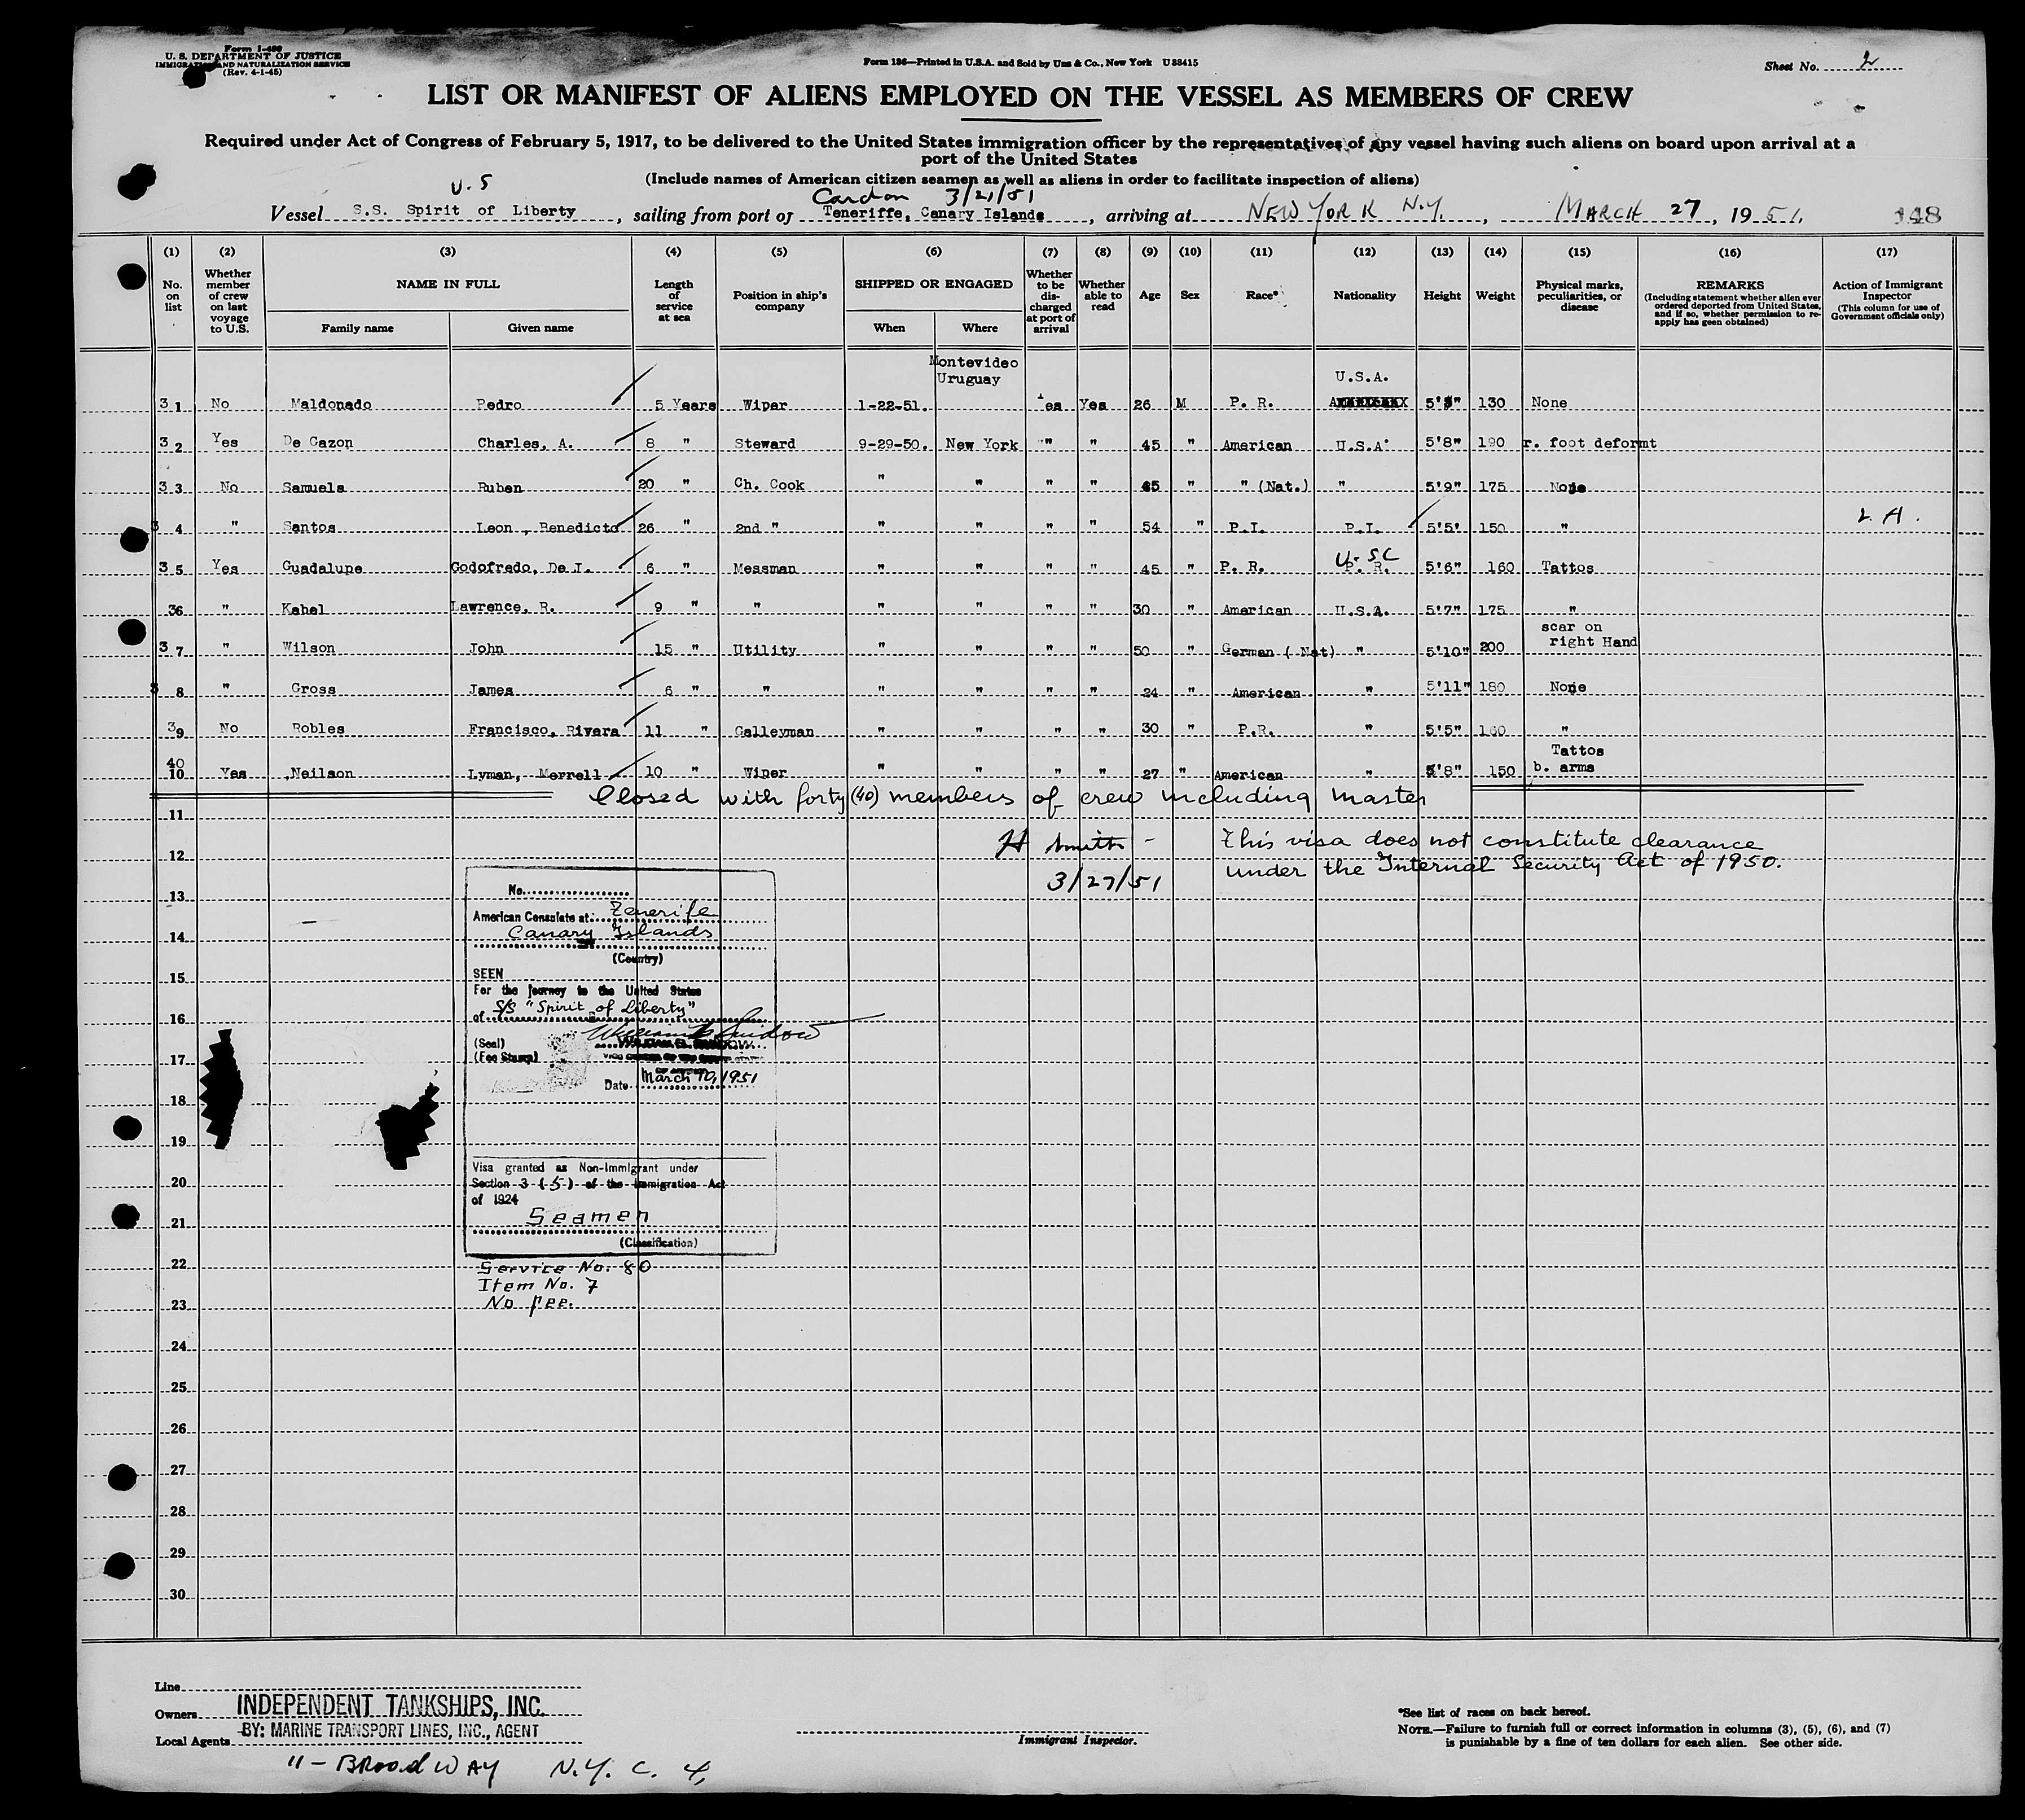 Form I-489
U. S. DEPARTMENT OF JUSTICE
IMMIGRATION AND NATURALIZATION SERVICE
(Rev. 4-1-45)
Form 136—Printed in U.S.A. and Sold by Unz & Co., New York U 38415
Sheet No. 2
LIST OR MANIFEST OF ALIENS EMPLOYED ON THE VESSEL AS MEMBERS OF CREW
Required under Act of Congress of February 5, 1917, to be delivered to the United States immigration officer by the representatives of any vessel having such aliens on board upon arrival at a
port of the United States
(Include names of American citizen seamen as well as aliens in order to facilitate inspection of aliens)
U.S Cardon 3/21/51
Vessel S.S. Spirit of Liberty, sailing from port of Teneriffe, Canary Islands, arriving at NEW YORK N.Y., MARCH 27, 1951. 148
(1) (2) (3) (4) (5) (6) (7) (8) (9) (10) (11) (12) (13) (14) (15) (16) (17)
No. on list
Whether member of crew on last voyage to U.S.
NAME IN FULL
Family name
Given name
Length of service at sea
Position in ship's company
SHIPPED OR ENGAGED
When
Where
Whether to be discharged at port of arrival
Whether able to read
Age
Sex
Race*
Nationality
Height
Weight
Physical marks, peculiarities, or disease
REMARKS
(Including statement whether alien ever ordered deported from United States, and if so, whether permission to reapply has geen obtained)
Action of Immigrant Inspector
(This column for use of Government officials only)
Montevideo
Uruguay U.S.A.
31 No Maldonado Pedro 5 Years Wiper 1-22-51. Yes Yes 26 M P. R. 5' 130 None
32 Yes De Gazon Charles, A. 8 " Steward 9-29-50. New York " " 45 " American U.S.A. 5'8" 190 r. foot deformt
33 No Samuels Ruben 20 " Ch. Cook " " " " 45 " " (Nat.) " 5'9" 175 None
3 4 " Santos Leon, Benedicto 26 " 2nd " " " " " 54 " P.I. P.I. 5'5' 150 "
U.SC
35 Yes Guadalupe Godofredo, De J. 6 " Messman " " " " 45 " P. R. P. R. 5'6" 160 Tattos
36 " Kabel Lawrence, R. 9 " " " " " " 30 " American U.S.A. 5'7" 175 "
scar on
37 " Wilson John 15 " Utility " " " " 50 " German (Nat) " 5'10" 200 right Hand
3 8 " Gross James 6 " " " " " " 24 " American " 5'11" 180 None
39 No Robles Francisco, Rivera 11 " Galleyman " " " " 30 " P.R. " 5'5" 160 "
Tattos
40
10 Yes Neilson Lyman, Merrell 10 " Wiper " " " " 27 " American " 5'8" 150 b. arms
Closed with forty (40) members of crew including master
11
H Smith - This visa does not constitute clearance
12 under the Internal Security Act of 1950.
3/27/51
No.
13
American Consulate at: Tenerife
Canary Islands
14
(Country)
SEEN
15
For the journey to the United States
of S/S "Spirit of Liberty"
16
(Seal)
(Fee Stamp)
17
Date March 10, 1951
18
19
Visa granted as Non-Immigrant under
20 Section 3 (5) of the Immigration Act
of 1924
Seamen
21
(Classification)
22 Service No. 80
Item No. 7
No fee.
23
24
25
26
27
28
29
30
Line
Owners INDEPENDENT TANKSHIPS, INC.
BY: MARINE TRANSPORT LINES, INC., AGENT
Local Agents
11 - BROADWAY N.Y. C. 4,
Immigrant Inspector.
*See list of races on back hereof.
NOTE.—Failure to furnish full or correct information in columns (3), (5), (6), and (7)
is punishable by a fine of ten dollars for each alien. See other side.